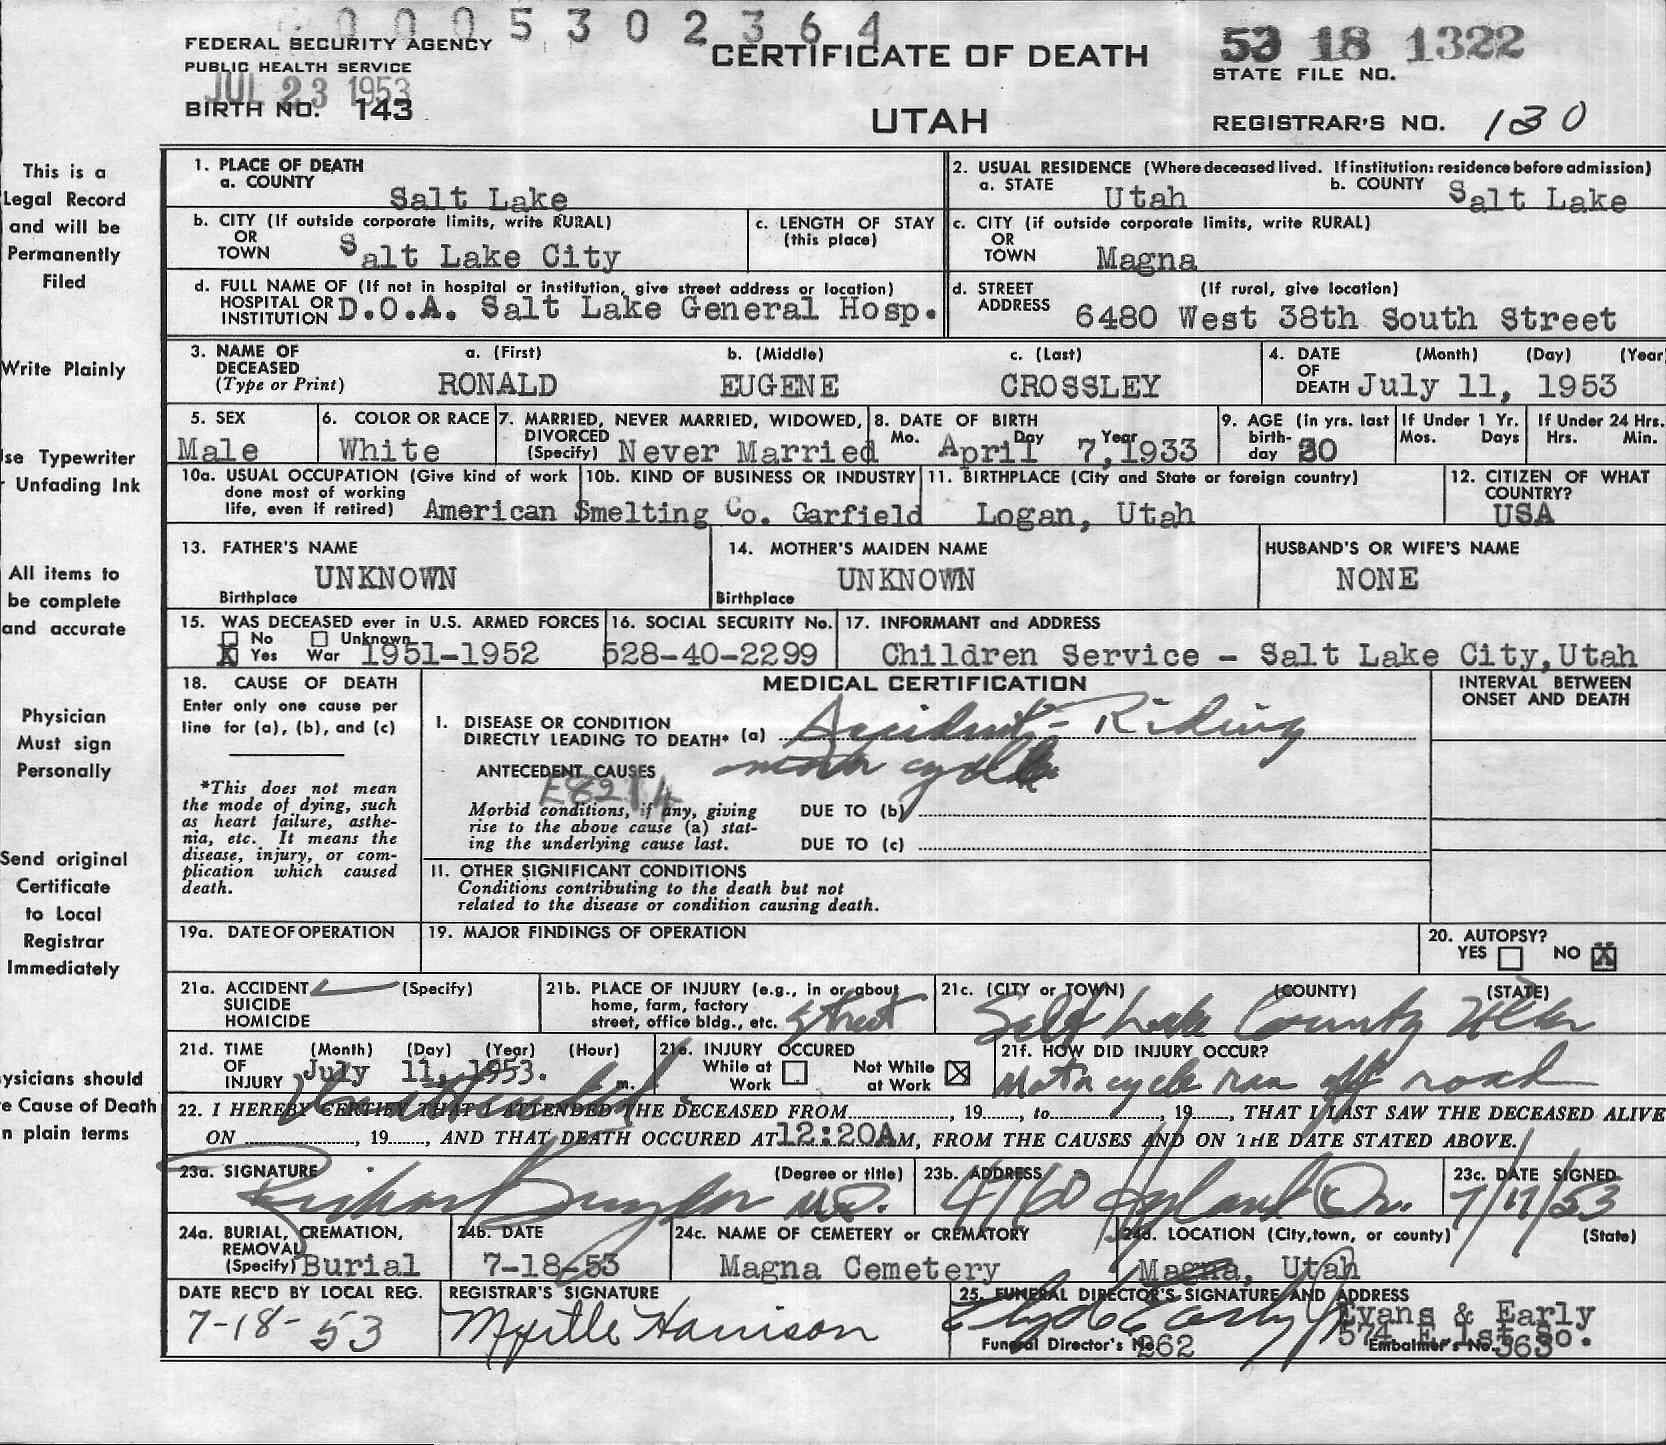 0005302364
FEDERAL SECURITY AGENCY
PUBLIC HEALTH SERVICE
JUL 23 1953
BIRTH NO. 143
CERTIFICATE OF DEATH
UTAH
53 18 1322
STATE FILE NO.
REGISTRAR'S NO. 130
This is a
Legal Record
and will be
Permanently
Filed
Write Plainly
se Typewriter
Unfading Ink
All items to
be complete
and accurate
Physician
Must sign
Personally
Send original
Certificate
to Local
Registrar
Immediately
ysicians should
e Cause of Death
n plain terms
1. PLACE OF DEATH
a. COUNTY Salt Lake
2. USUAL RESIDENCE (Where deceased lived. If institution: residence before admission)
a. STATE Utah b. COUNTY Salt Lake
b. CITY (If outside corporate limits, write RURAL)
OR
TOWN Salt Lake City
c. LENGTH OF STAY
(this place)
c. CITY (if outside corporate limits, write RURAL)
OR
TOWN Magna
d. FULL NAME OF (If not in hospital or institution, give street address or location)
HOSPITAL OR
INSTITUTION D.O.A. Salt Lake General Hosp.
d. STREET (If rural, give location)
ADDRESS 6480 West 38th South Street
3. NAME OF
DECEASED
(Type or Print)
a. (First) b. (Middle) c. (Last)
RONALD EUGENE CROSSLEY
4. DATE (Month) (Day) (Year
OF
DEATH July 11, 1953
5. SEX
Male
6. COLOR OR RACE
White
7. MARRIED, NEVER MARRIED, WIDOWED,
DIVORCED
(Specify) Never Married
8. DATE OF BIRTH
Mo. Day Year
April 7, 1933
9. AGE (in yrs. last
birth-
day 20
If Under 1 Yr.
Mos. Days
If Under 24 Hrs.
Hrs. Min.
10a. USUAL OCCUPATION (Give kind of work
done most of working
life, even if retired)
10b. KIND OF BUSINESS OR INDUSTRY
American Smelting Co. Garfield
11. BIRTHPLACE (City and State or foreign country)
Logan, Utah
12. CITIZEN OF WHAT
COUNTRY?
USA
13. FATHER'S NAME
UNKNOWN
Birthplace
14. MOTHER'S MAIDEN NAME
UNKNOWN
Birthplace
HUSBAND'S OR WIFE'S NAME
NONE
15. WAS DECEASED ever in U.S. ARMED FORCES
No Unknown
X Yes War 1951-1952
16. SOCIAL SECURITY No.
528-40-2299
17. INFORMANT and ADDRESS
Children Service - Salt Lake City, Utah
18. CAUSE OF DEATH
Enter only one cause per
line for (a), (b), and (c)
*This does not mean
the mode of dying, such
as heart failure, asthe-
nia, etc. It means the
disease, injury, or com-
plication which caused
death.
MEDICAL CERTIFICATION
INTERVAL BETWEEN
ONSET AND DEATH
I. DISEASE OR CONDITION
DIRECTLY LEADING TO DEATH* (a) Accident - Riding
motor cycle
ANTECEDENT CAUSES
E821.4
Morbid conditions, if any, giving
rise to the above cause (a) stat-
ing the underlying cause last.
DUE TO (b)
DUE TO (c)
11. OTHER SIGNIFICANT CONDITIONS
Conditions contributing to the death but not
related to the disease or condition causing death.
19a. DATE OF OPERATION
19. MAJOR FINDINGS OF OPERATION
20. AUTOPSY?
YES NO X
21a. ACCIDENT (Specify)
SUICIDE
HOMICIDE
21b. PLACE OF INJURY (e.g., in or about
home, farm, factory
street, office bldg., etc. Street
21c. (CITY or TOWN) (COUNTY) (STATE)
Salt Lake County Utah
21d. TIME (Month) (Day) (Year) (Hour)
OF
INJURY July 11, 1953. m.
21e. INJURY OCCURED
While at
Work
Not While
at Work X
21f. HOW DID INJURY OCCUR?
Motorcycle ran off road
22. I HEREBY CERTIFY THAT I ATTENDED THE DECEASED FROM, 19, to, 19, THAT I LAST SAW THE DECEASED ALIVE
ON, 19, AND THAT DEATH OCCURED AT 12:20A M, FROM THE CAUSES AND ON THE DATE STATED ABOVE.
23a. SIGNATURE (Degree or title)
M.D.
23b. ADDRESS
4160 Hyland Dr.
23c. DATE SIGNED
7/17/53
24a. BURIAL, CREMATION,
REMOVAL
(Specify) Burial
24b. DATE
7-18-53
24c. NAME OF CEMETERY or CREMATORY
Magna Cemetery
24d. LOCATION (City, town, or county) (State)
Magna, Utah
DATE REC'D BY LOCAL REG.
7-18-53
REGISTRAR'S SIGNATURE
Myrtle Harrison
25. FUNERAL DIRECTOR'S SIGNATURE AND ADDRESS
Clyde E Early
Evans & Early
574 E 1st So.
Funeral Director's No. 262
Embalmer's No. 363